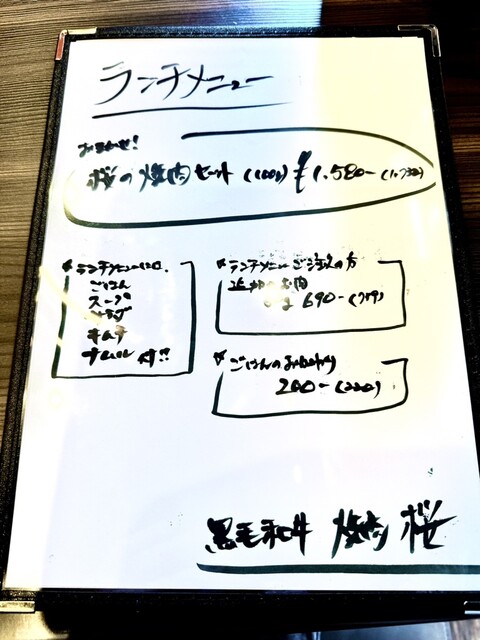 ランチメニュー
おまかせ!
桜の焼肉セット(100g)¥1.580-(1.738)
*ランチメニューには、
ごはん
スープ
サラダ
キムチ
ナムル 付!!
*ランチメニューご注文の方
追加のお肉
690-(759)
*ごはんのおかわり
200-(220)
黒毛和牛 焼肉 桜